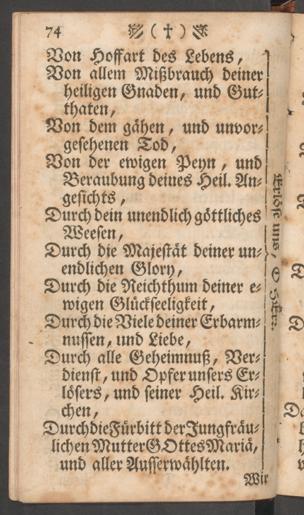 74 ( † )
Von Hoffart des Lebens,
Von allem Mißbrauch deiner
heiligen Gnaden, und Gut-
thaten,
Von dem gähen, und unvor-
gesehenen Tod,
Von der ewigen Peyn, und
Beraubung deines Heil. An-
gesichts,
Durch dein unendlich göttliches
Weesen,
Durch die Majestät deiner un-
endlichen Glory,
Durch die Reichthum deiner e-
wigen Glückseeligkeit,
Durch die Viele deiner Erbarm-
nussen, und Liebe,
Durch alle Geheimnuß, Ver-
dienst, und Opfer unsers Er-
lösers, und seiner Heil. Kir-
chen,
Durch die Fürbitt der Jungfräu-
lichen Mutter GOttes Mariä,
und aller Ausserwählten.
Wir
Erlöse uns, O HErr.